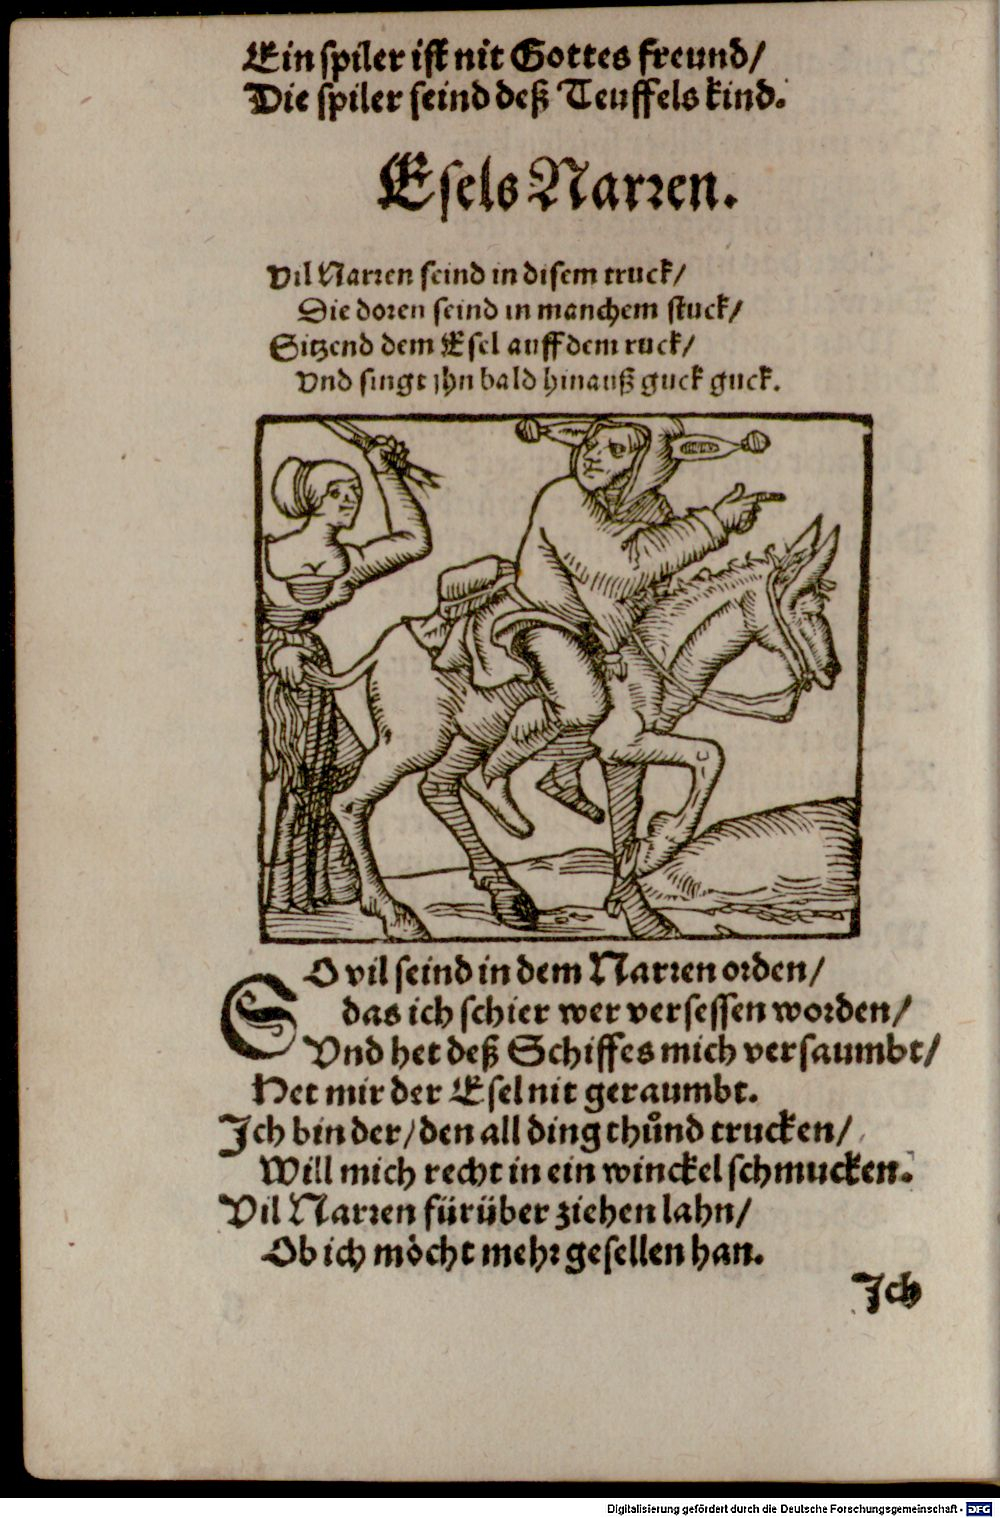 Ein spiler ist nit Gottes freund/
Die spiler seind deß Teuffels kind.
Esels Narren.
Vil Narren seind in disem truck/
Die doren seind in manchem stuck/
Sitzend dem Esel auff dem ruck/
Vnd singt jhn bald hinauß guck guck.
SO vil seind in dem Narren orden/
das ich schier wer versessen worden/
Vnd het deß Schiffes mich versaumbt/
Het mir der Esel nit geraumbt.
Ich bin der/den all ding thůnd trucken/
Will mich recht in ein winckel schmucken.
Vil Narren fürüber ziehen lahn/
Ob ich möcht mehr gesellen han.
Ich
Digitalisierung gefördert durch die Deutsche Forschungsgemeinschaft - DFG